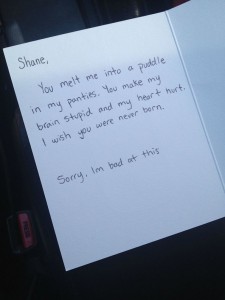 Shane,
You melt me into a puddle
in my panties. You make my
brain stupid and my heart hurt.
I wish you were never born.
Sorry, Im bad at this